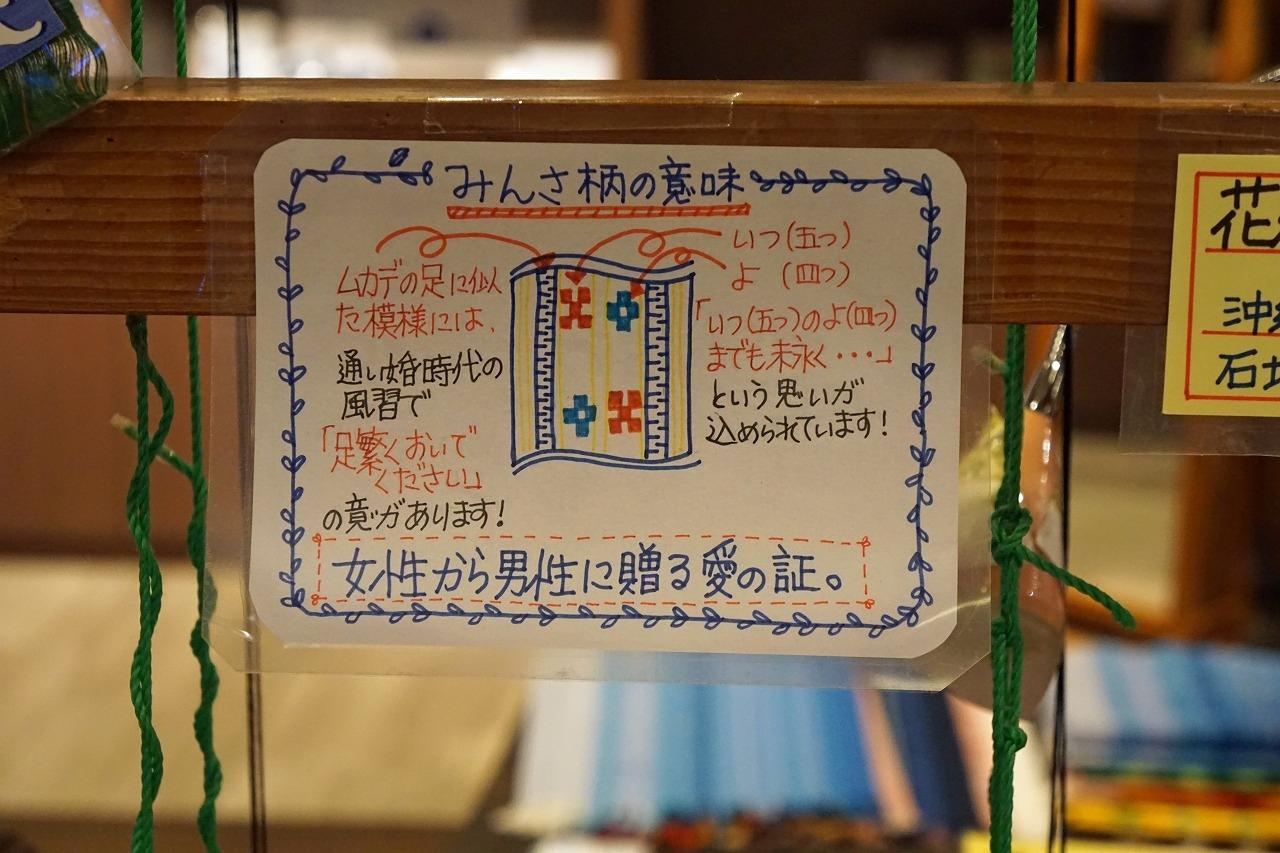 みんさ柄の意味
ムカデの足に似
た模様には、
通い婚時代の
風習で
「足繁くおいで
ください」
の意がありま​す!
いつ(五つ)
よ (四つ)
「いつ(五つ)のよ(四つ)
までも末永く・・・」
という思いが
込められています!
女性から男性に贈る愛の証。
花
沖
石